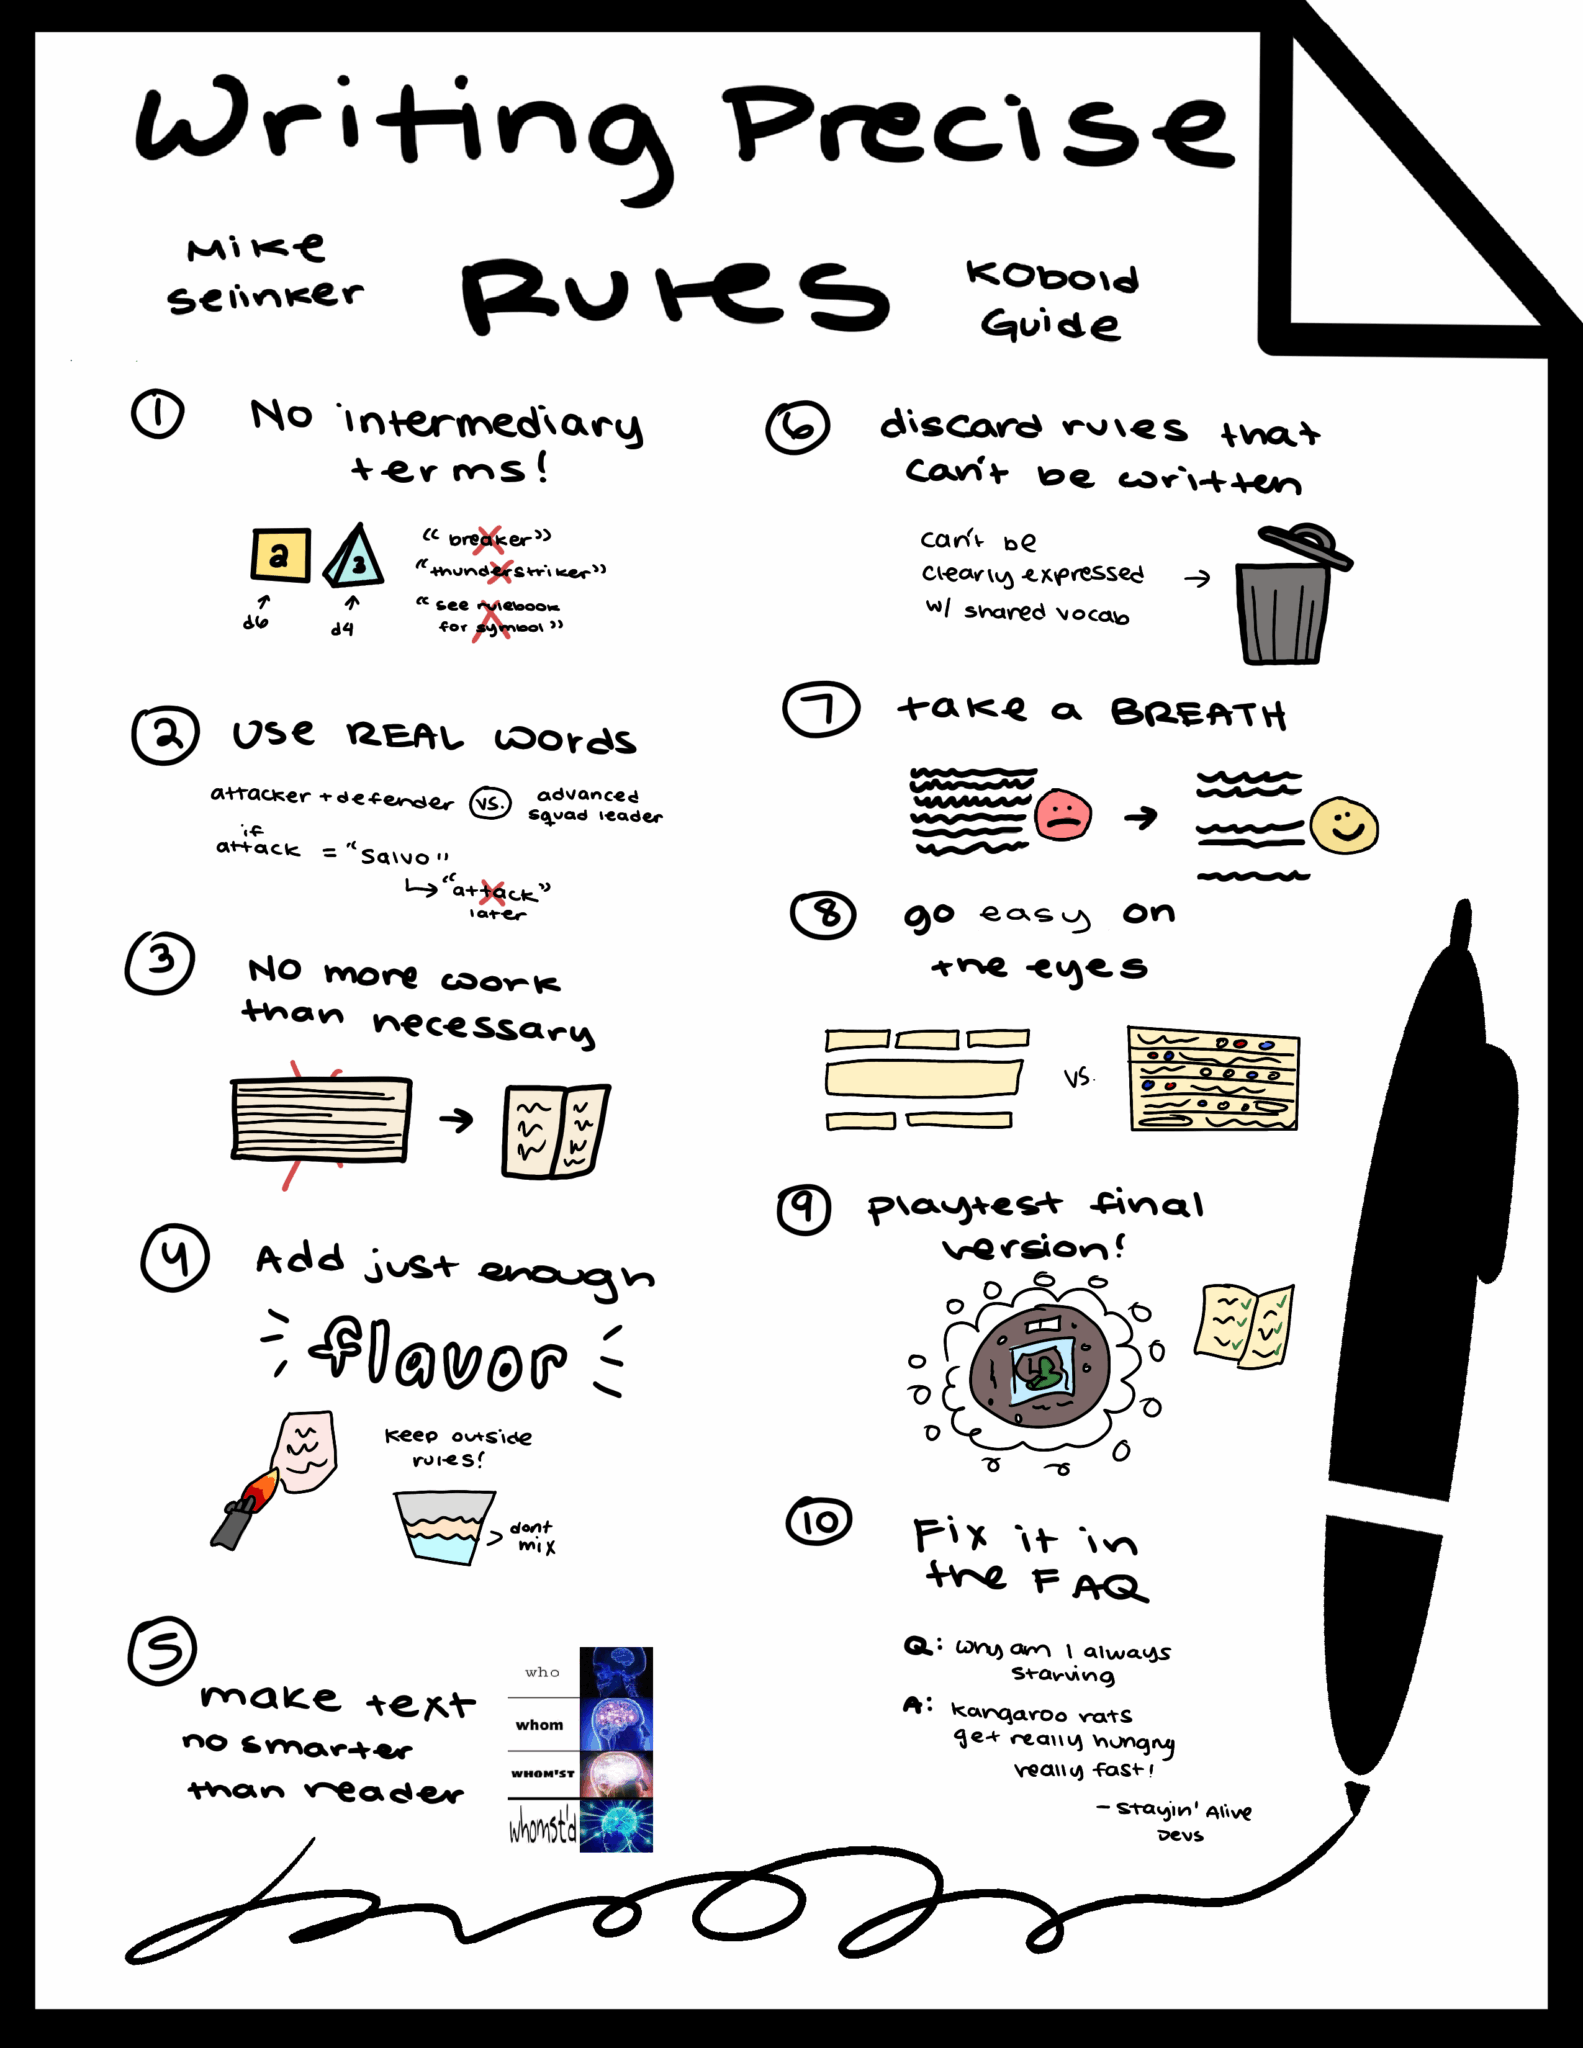 Writing Precise
Rules
Mike
Selinker
Kobold
Guide
1 No intermediary
terms!
a 3
d6 d4
"breaker"
"thunderstriker"
"see rulebook
for symbol"
2 Use REAL words
attacker + defender vs. advanced
squad leader
if
attack = "Salvo"
"attack"
later
3 No more work
than necessary
4 Add just enough
flavor
keep outside
rules!
dont
mix
5 make text
no smarter
than reader
who
whom
WHOM'ST
whomst'd
6 discard rules that
can't be written
can't be
clearly expressed
w/ shared vocab
7 take a BREATH
8 go easy on
the eyes
vs.
9 playtest final
version!
10 Fix it in
the FAQ
Q: why am I always
starving
A: kangaroo rats
get really hungry
really fast!
- Stayin' Alive
Devs